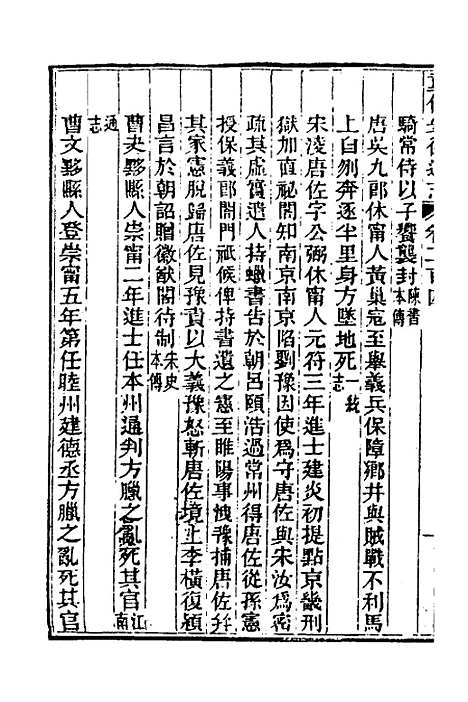 騎常侍以子饗襲封陳書本傳
唐吳九郎休甯人黃巢寇至舉義兵保障鄉井與賊戰不利馬
上自刎奔逐半里身方墜地死一統志
宋淩唐佐字公弼休甯人元符三年進士建炎初提點京畿刑
獄加直祕閣知南京南京陷劉豫因使爲守唐佐與宋汝爲密
疏其虛實遣人持蠟書告於朝呂頤浩過常州得唐佐從孫憲
授保義郎閤門祇候俾持書遺之憲至睢陽事洩豫捕唐佐幷
其家憲脫歸唐佐見豫責以大義豫怒斬唐佐境上李橫復潁
昌言於朝詔贈徽猷閣待制宋史本傳
曹夬黟縣人崇甯二年進士任本州通判方臘之亂死其官江南
通志
曹文黟縣人登崇甯五年第任睦州建德丞方臘之亂死其官